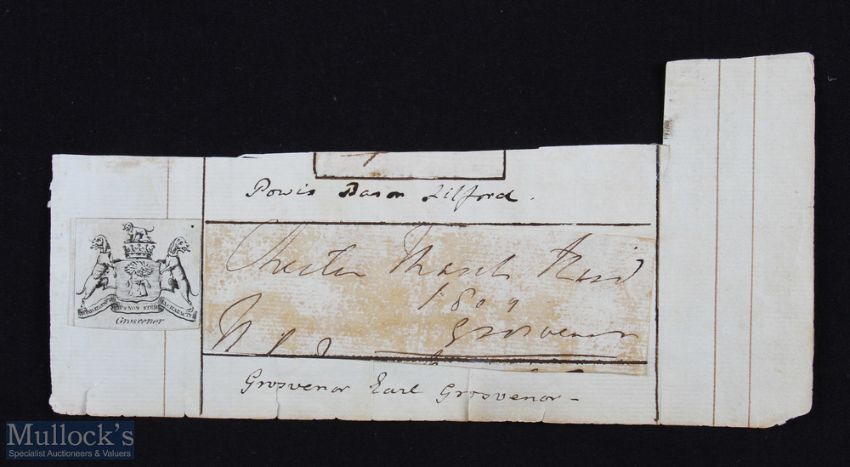 Powis Baron Lilford.
Chester March
1809
Grosvenor
Grosvenor
Grosvenor Earl Grosvenor -
Mullock's
Specialist Auctioneers & Valuers